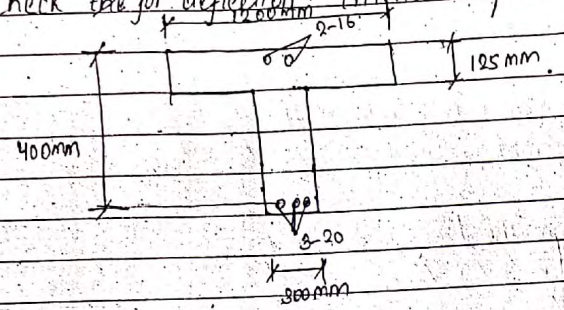 heck for deflection
1200mm
2-16
125 mm.
400mm
3-20
300mm